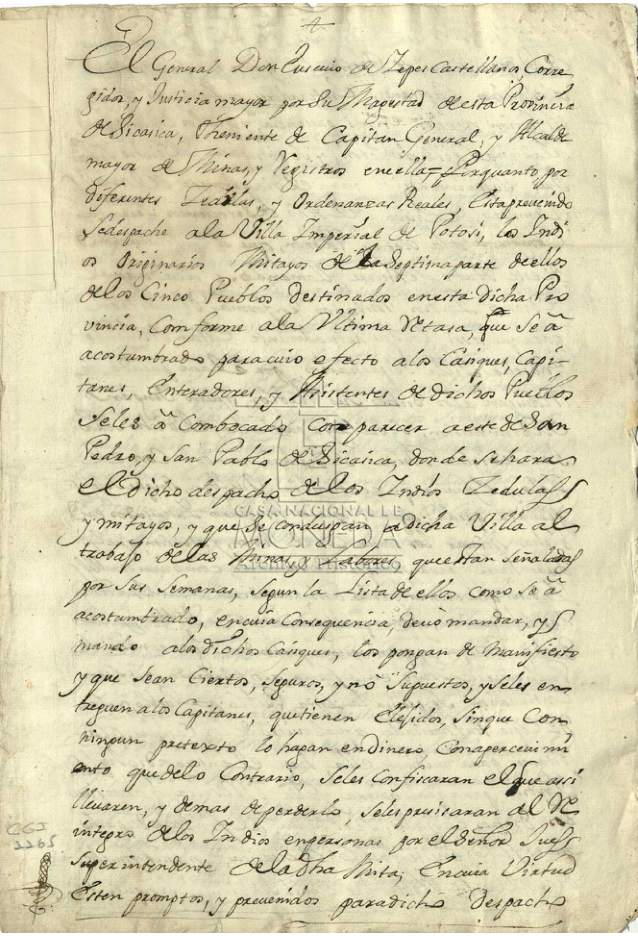 El General Don Eusevio de Yepes Castellanos, Corre
gidor, y Justicia mayor por Su Magestad de esta Provincia
de Sicasica, Theniente de Capitan General, y Alcalde
mayor de Minas, y Registros en ella = Por quanto, por
diferentes Zedulas, y Ordenanzas Reales, esta prevenido
se despache a la Villa Imperial de Potosi, los Indi
os Originarios Mitayos de la Septima parte de ellos
de los Cinco Pueblos destinados en esta dicha Pro
vincia, Comforme a la Ultima Retasa, que se â
acostumbrado para cuio efecto a los Casiques, Capi-
tanes, Enteradores, y Asistentes de dichos Pueblos
se les â Combocado Comparecer a este de San
Pedro, y San Pablo de Sicasica, donde se hara
el dicho despacho de los Indios Zedulas
y mitayos, y que se conduspan a dicha Villa al
trabajo de las Minas, y Labores, que estan señaladas
por sus Semanas, segun la Lista de ellos como se â
acostumbrado, en cuia Consequencia, devo mandar, y
mando a los dichos Casiques, los pongan de Manifiesto
y que sean Ciertos, Seguros, y nô Supuestos, y se les en
treguen a los Capitanes, que tienen Elejidos, sin que Con
ningun pretexto lo hagan en dinero, Con apercevimi
ento que de lo Contrario, se les Confiscaran el que asi
llevaren, y demas de perderlo, se les presisaran al Re
integro de los Indios en personas por el Señor Jues
Super intendente de la dha Mita; En cuia Virtud
Esten promptos, y prevenidos para dicho Despacho
CGI
2265
CASA NACIONAL DE
MONEDA
Archivo Histórico